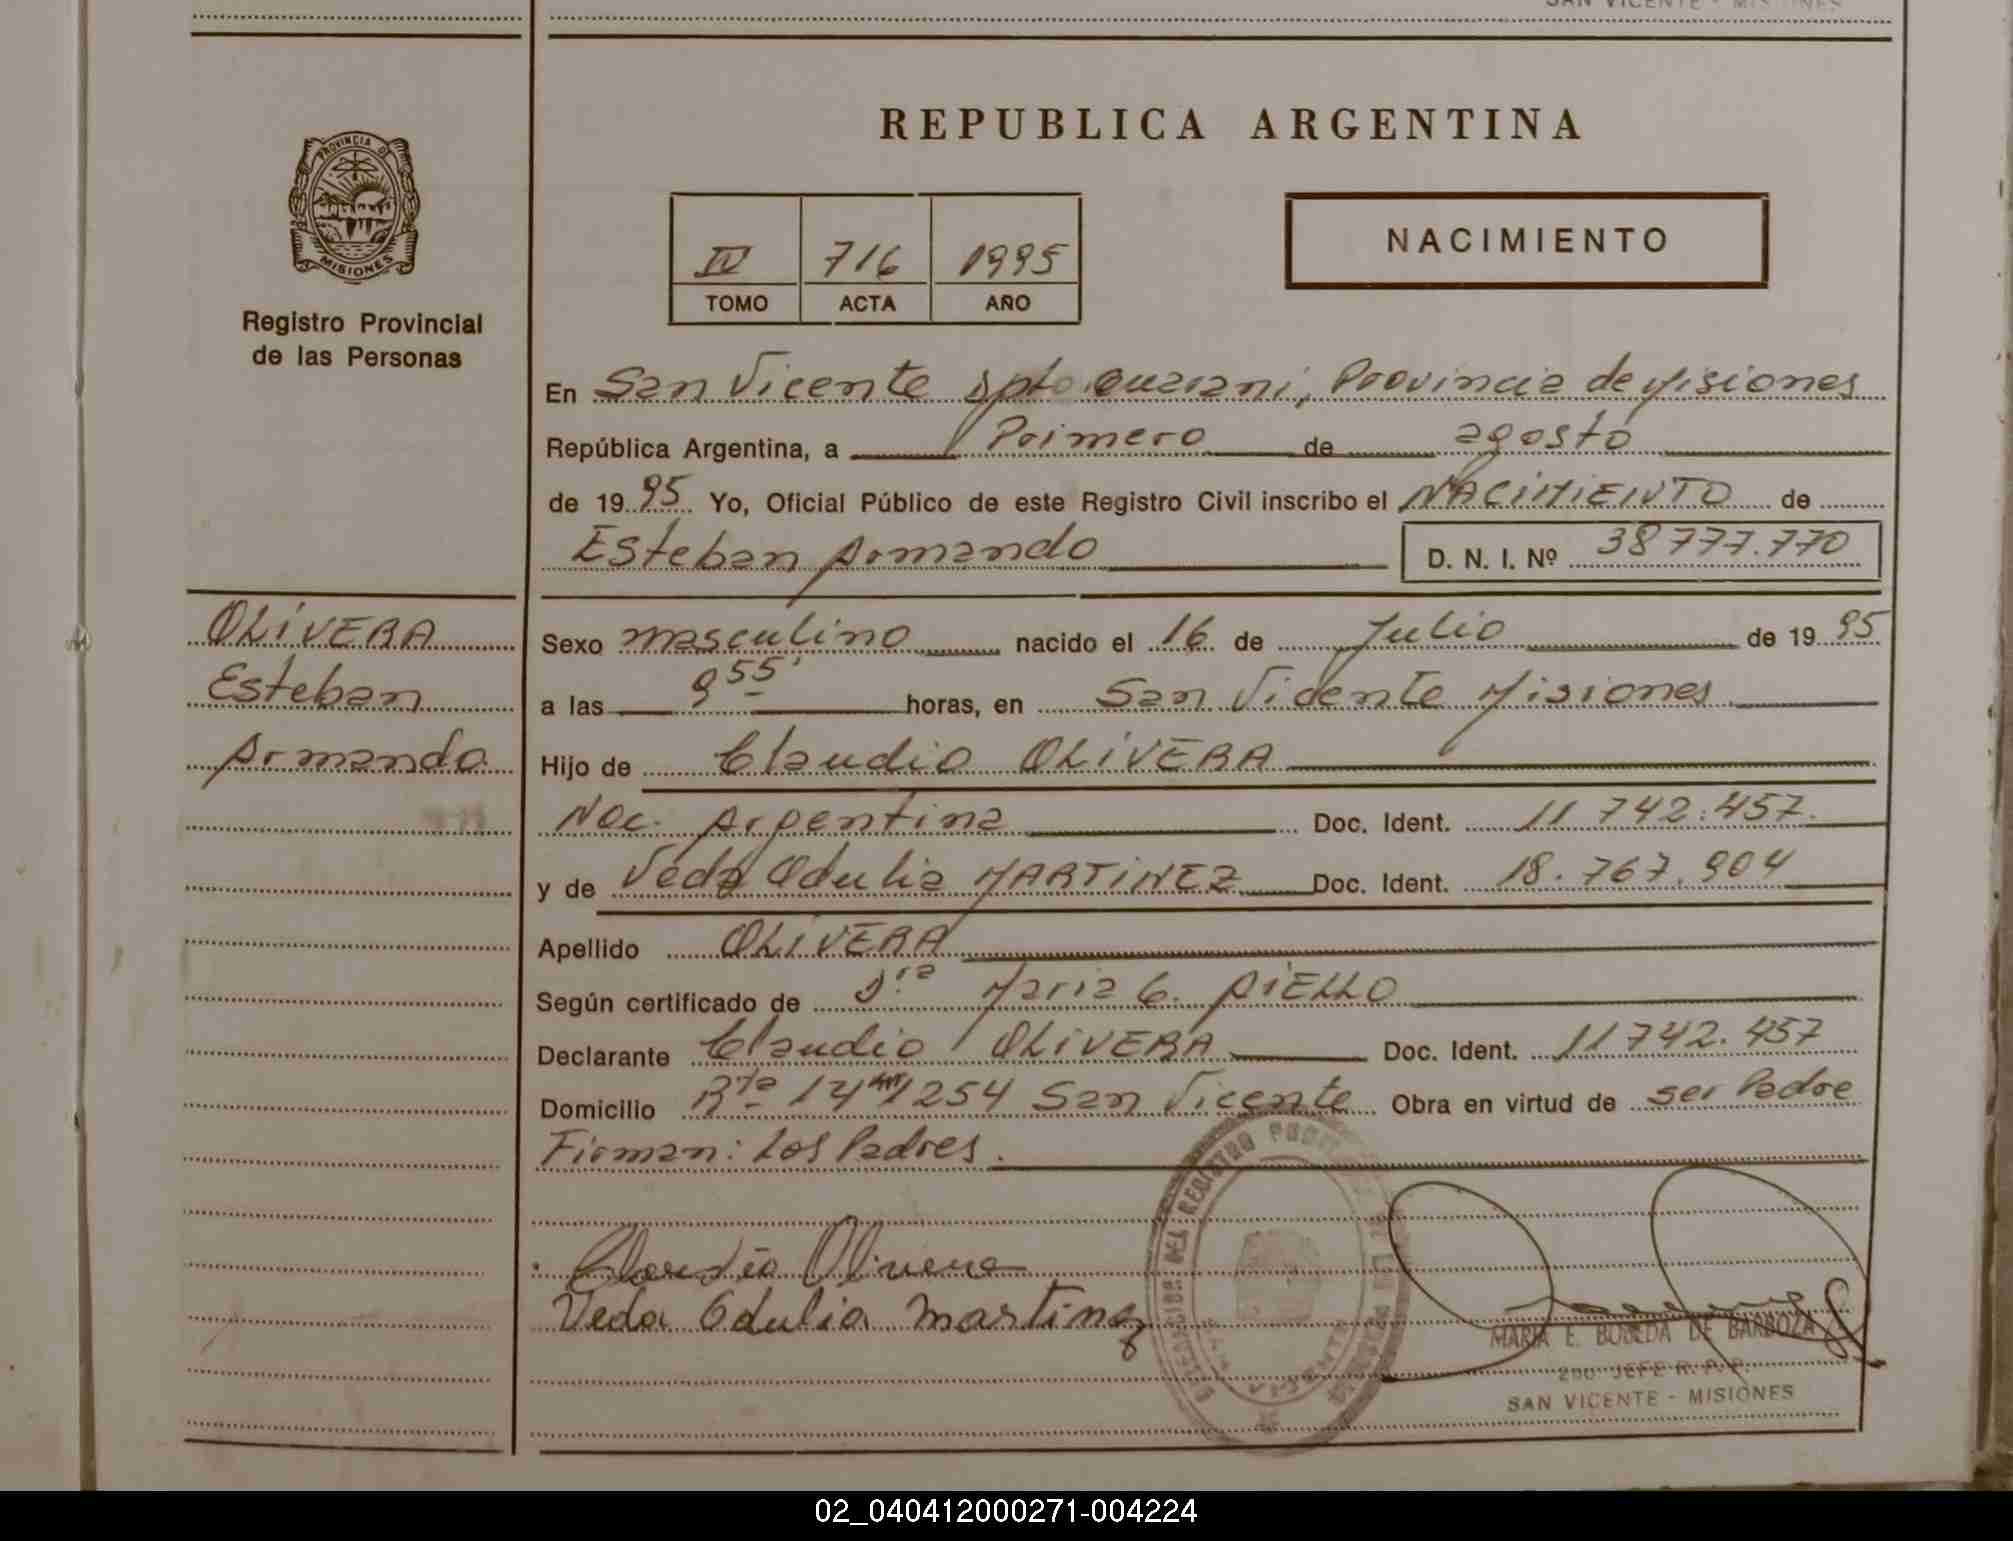 SAN VICENTE - MISIONES
REPUBLICA ARGENTINA
PROVINCIA DE
MISIONES
Registro Provincial
de las Personas
IV 716 1995
TOMO ACTA AÑO
NACIMIENTO
En San Vicente Dpto Guarani, Provincia de Misiones
República Argentina, a Primero de agosto
de 1995 Yo, Oficial Público de este Registro Civil inscribo el NACIMIENTO de
Esteban Armando D. N. I. Nº 38777.770
OLIVERA
Esteban
Armando
Sexo masculino nacido el 16 de Julio de 1995
a las 9 55' horas, en San Vicente Misiones
Hijo de Claudio OLIVERA
Nac. Argentina Doc. Ident. 11 742.457.
y de Veda Odulia MARTINEZ Doc. Ident. 18.767.904
Apellido OLIVERA
Según certificado de Dra Maria C. AIELLO
Declarante Claudio OLIVERA Doc. Ident. 11742.457
Domicilio Rta 14 km 1254 San Vicente Obra en virtud de ser Padre
Firman: Los Padres.
Claudio Olivera
Veda Odulia Martinez
MARIA E. BOBEDA DE BARBOZA
2DO JEFE R. P. P.
SAN VICENTE - MISIONES
02_040412000271-004224